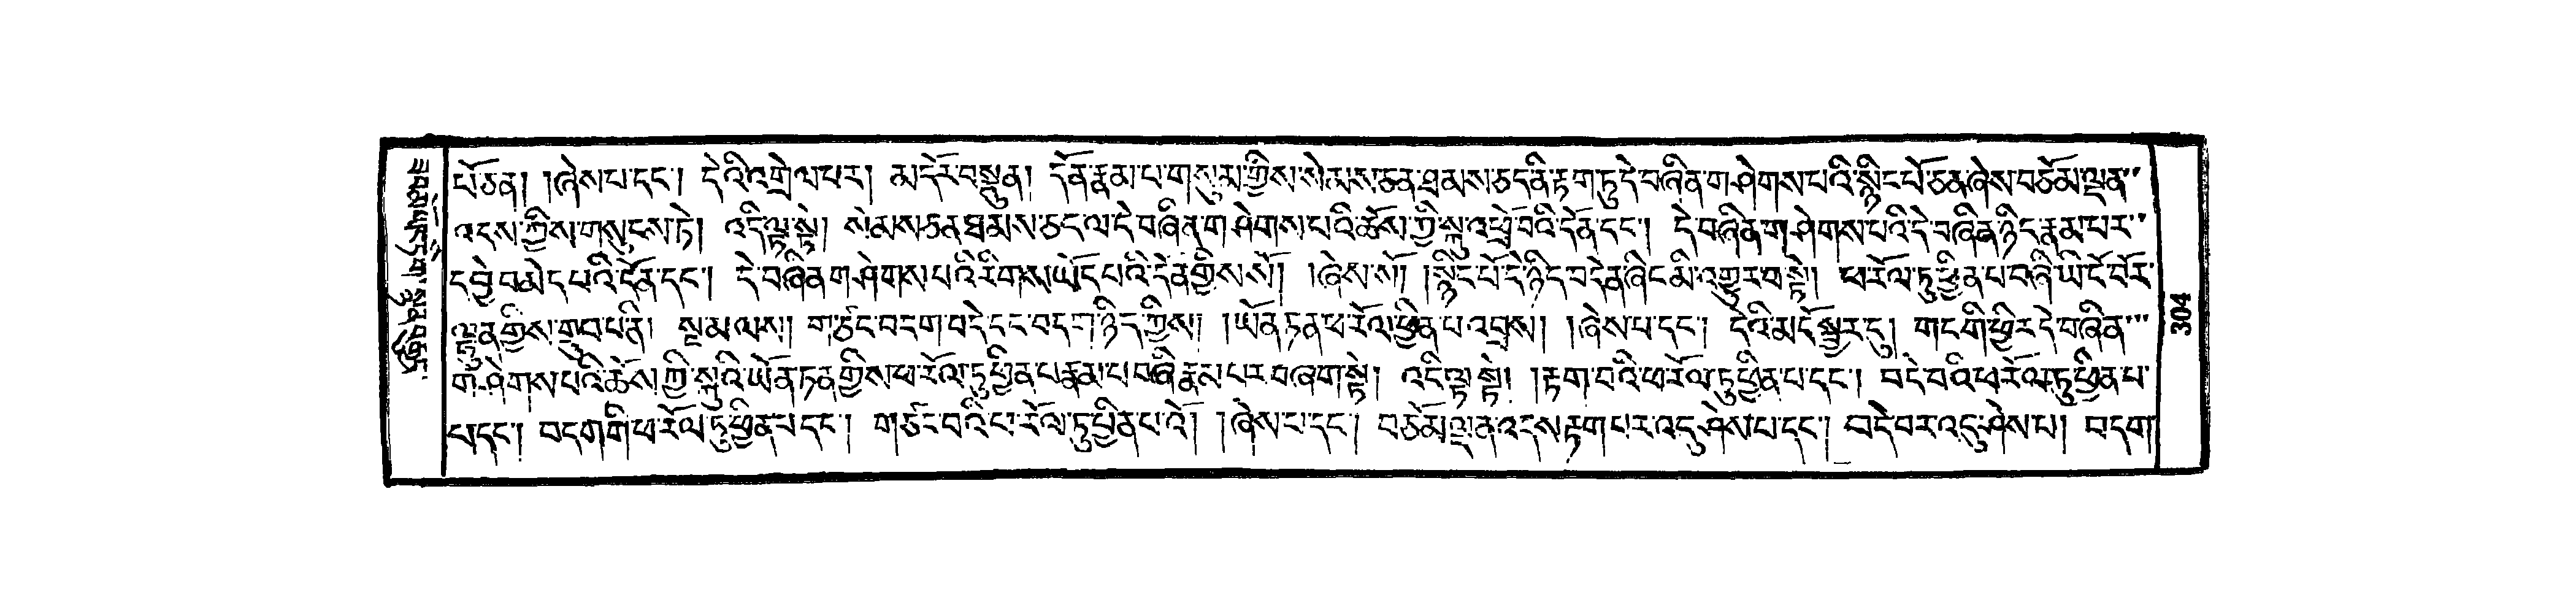 པོ་ཅན། །ཞེས་པ་དང་། དེའི་འགྲེལ་པར། མདོར་བསྡུན། དོན་རྣམ་པ་གསུམ་གྱིས་སེམས་ཅན་ཐམས་ཅད་ནི་རྟག་ཏུ་དེ་བཞིན་གཤེགས་པའི་སྙིང་པོ་ཅན་ཞེས་བཅོམ་ལྡན་
འདས་ཀྱིས་གསུངས་ཏེ། འདི་ལྟ་སྟེ། སེམས་ཅན་ཐམས་ཅད་ལ་དེ་བཞིན་གཤེགས་པའི་ཆོས་ཀྱི་སྐུ་འཕྲོ་བའི་དོན་དང་། དེ་བཞིན་གཤེགས་པའི་དེ་བཞིན་ཉིད་རྣམ་པར་
དབྱེ་བ་མེད་པའི་དོན་དང་། དེ་བཞིན་གཤེགས་པའི་རིགས་ཡོད་པའི་དོན་གྱིས་སོ། །ཞེས་སོ། །སྙིང་པོ་དེ་ཉིད་བདེན་ཞིང་མི་འགྱུར་བ་སྟེ། ཕ་རོལ་ཏུ་ཕྱིན་པ་བཞི་ཡི་ངོ་བོར་
ལྷུན་གྱིས་གྲུབ་པ་ནི། སྔ་མ་ལས། གཙང་བདག་བདེ་དང་བདག་ཉིད་ཀྱིས། །ཡོན་ཏན་ཕ་རོལ་ཕྱིན་པ་འབྲས། །ཞེས་པ་དང་། དེའི་མདོ་སྦྱར་དུ། གང་གི་ཕྱིར་དེ་བཞིན་
གཤེགས་པའི་ཆོས་ཀྱི་སྐུའི་ཡོན་ཏན་གྱིས་ཕ་རོལ་ཏུ་ཕྱིན་པ་རྣམ་པ་བཞི་རྣམ་པར་བཞག་སྟེ། འདི་ལྟ་སྟེ། །རྟག་པའི་ཕ་རོལ་ཏུ་ཕྱིན་པ་དང་། བདེ་བའི་ཕ་རོལ་ཏུ་ཕྱིན་པ་
པ་དང་། བདག་གི་ཕ་རོལ་ཏུ་ཕྱིན་པ་དང་། གཙང་བའི་ཕ་རོལ་ཏུ་ཕྱིན་པ་འོ། །ཞེས་པ་དང་། བཅོམ་ལྡན་འདས་རྟག་པར་འདུ་ཤེས་པ་དང་། བདེ་བར་འདུ་ཤེས་པ། བདག་